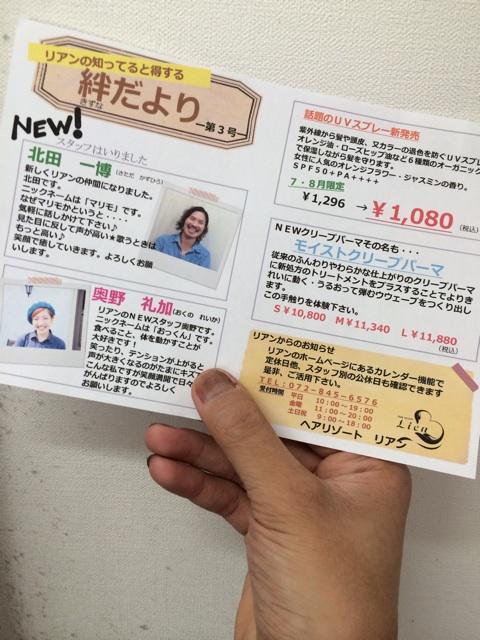 リアンの知ってると得する
絆だより
きずな
―第3号―
NEW!
スタッフはいりました
北田 一博 (きただ かずひろ)
新しくリアンの仲間になりました。
北田です。
ニックネームは「マリモ」です。
なぜマリモかというと・・・・
気軽に話しかけて下さい♪
見た目に反して声が高い★歌うときは
もっと高い♪
笑顔で癒していきます。よろしくお願
いします。
奥野 礼加 (おくの れいか)
リアンのNEWスタッフ奥野です。
ニックネームは「おっくん」です。
食べること、体を動かすことが
大好きです!
笑ったり、テンションが上がると
声が大きくなるのがたまにキズ
こんな私ですが笑顔満開で日々
がんばりますのでよろしく
お願いします。
話題のUVスプレー新発売
紫外線から髪や頭皮、又カラーの退色を防ぐUVスプレ
オレンジ油・ローズヒップ油など6種類のオーガニック
で保湿しながら髪を守ります。
女性に人気のオレンジフラワー・ジャスミンの香り。
SPF50+PA++++
7・8月限定
¥1,296 → ¥1,080 (税込)
NEWクリープパーマその名も・・・
モイストクリープパーマ
従来のふんわりやわらかな仕上がりのクリープパーマ
に新処方のトリートメントをプラスすることでよりき
れいに動く・うるおって弾むウェーブをつくり出し
この手触りを体験下さい。
S¥10,800 M¥11,340 L¥11,880
(税込)
リアンからのお知らせ
リアンのホームページにあるカレンダー機能で
定休日他、スタッフ別の公休日も確認できます
是非、ご活用下さい。
TEL:072-845-6576
受付時間 平日 10:00~19:00
金曜 11:00~20:00
土日祝 9:00~18:00
ヘアリゾート リアン
Lien